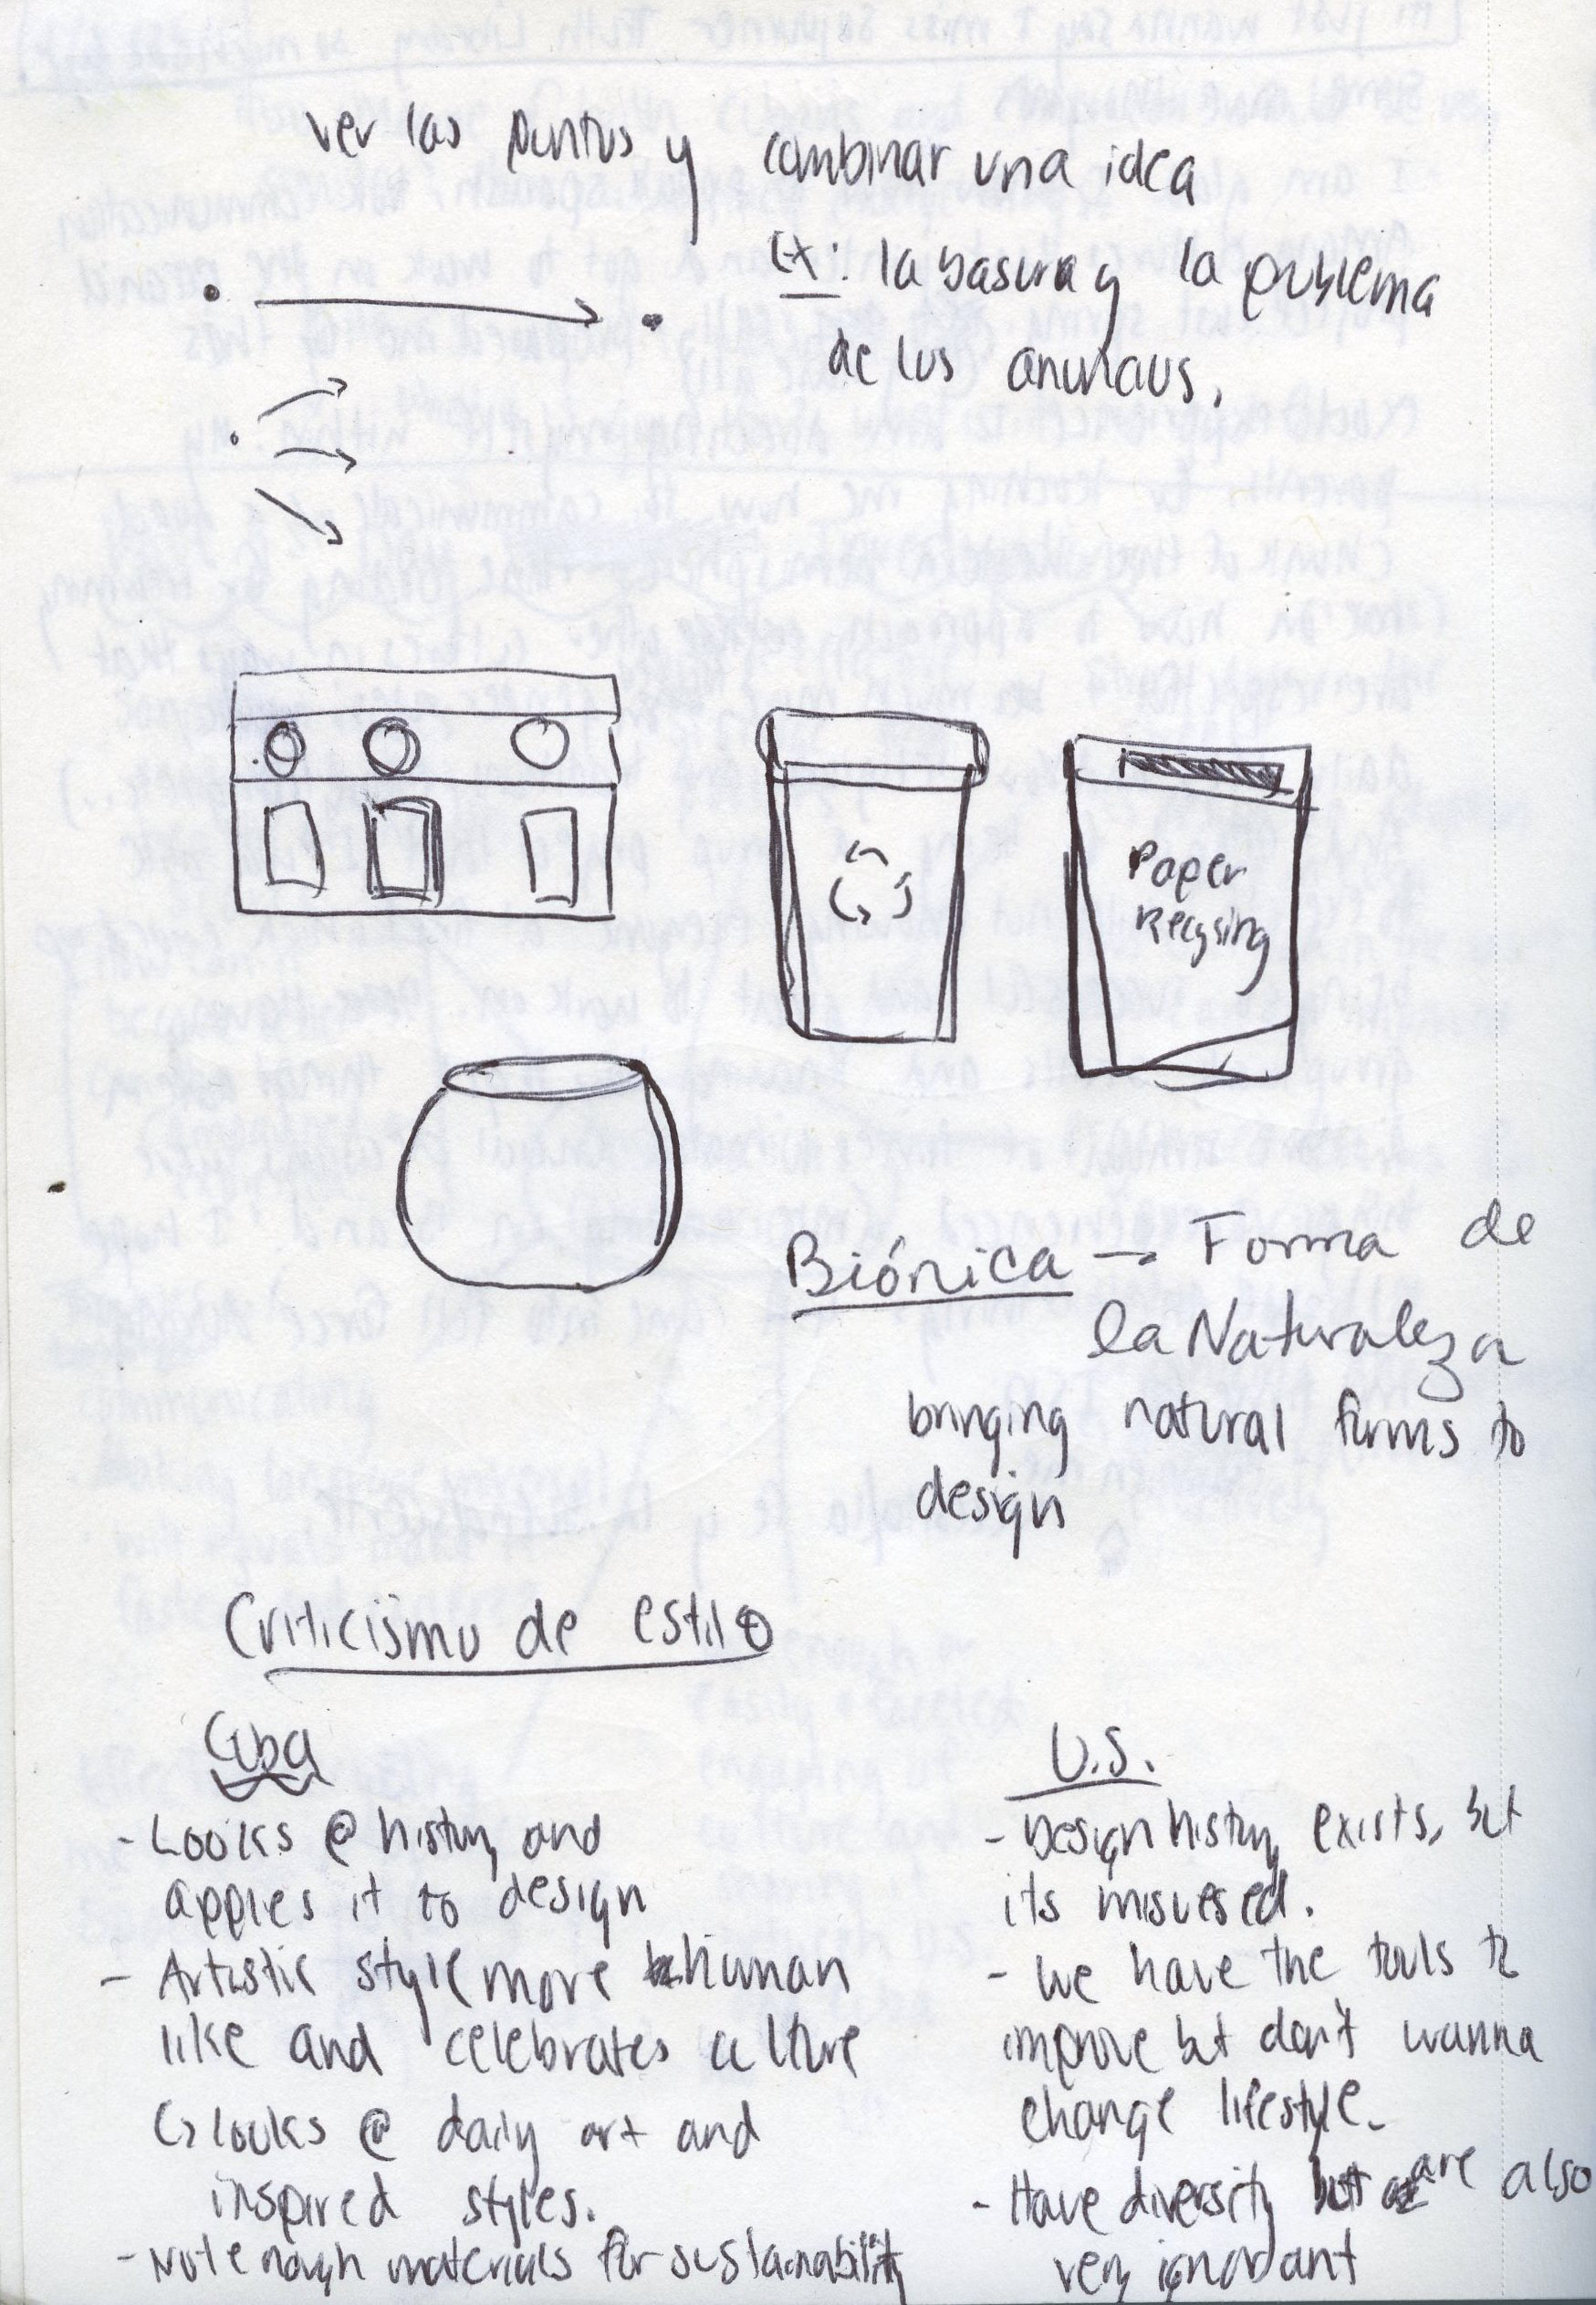 ver los puntos y combinar una idea
Ex: la basura y la problema
de los anuncios.
Paper
Recysing
Biónica → Forma de
la Naturaleza
bringing natural forms to
design
Criticismo de estilo
Cuba
- Looks @ history and
apples it to design
- Artistic style more human
like and celebrates culture
↳ looks @ daily art and
inspired styles.
- Not enough materials for sustainability
U.S.
- Design history exists, but
its misused.
- We have the tools to
improve but don't wanna
change lifestyle.
- Have diversity but are also
very ignorant